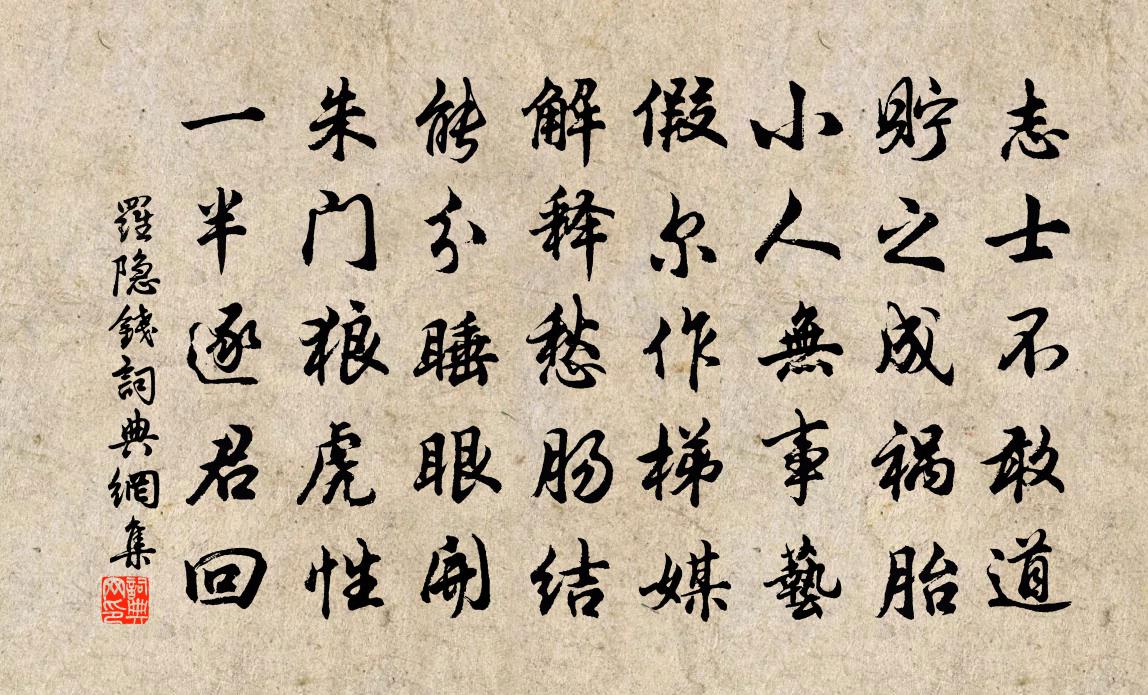 志士不敢道
贮之成祸胎
小人無事藝
假尔作梯媒
解释愁肠结
能分睡眼開
朱门狼虎性
一半逐君回
羅隐錢詞典網集
詞典網印